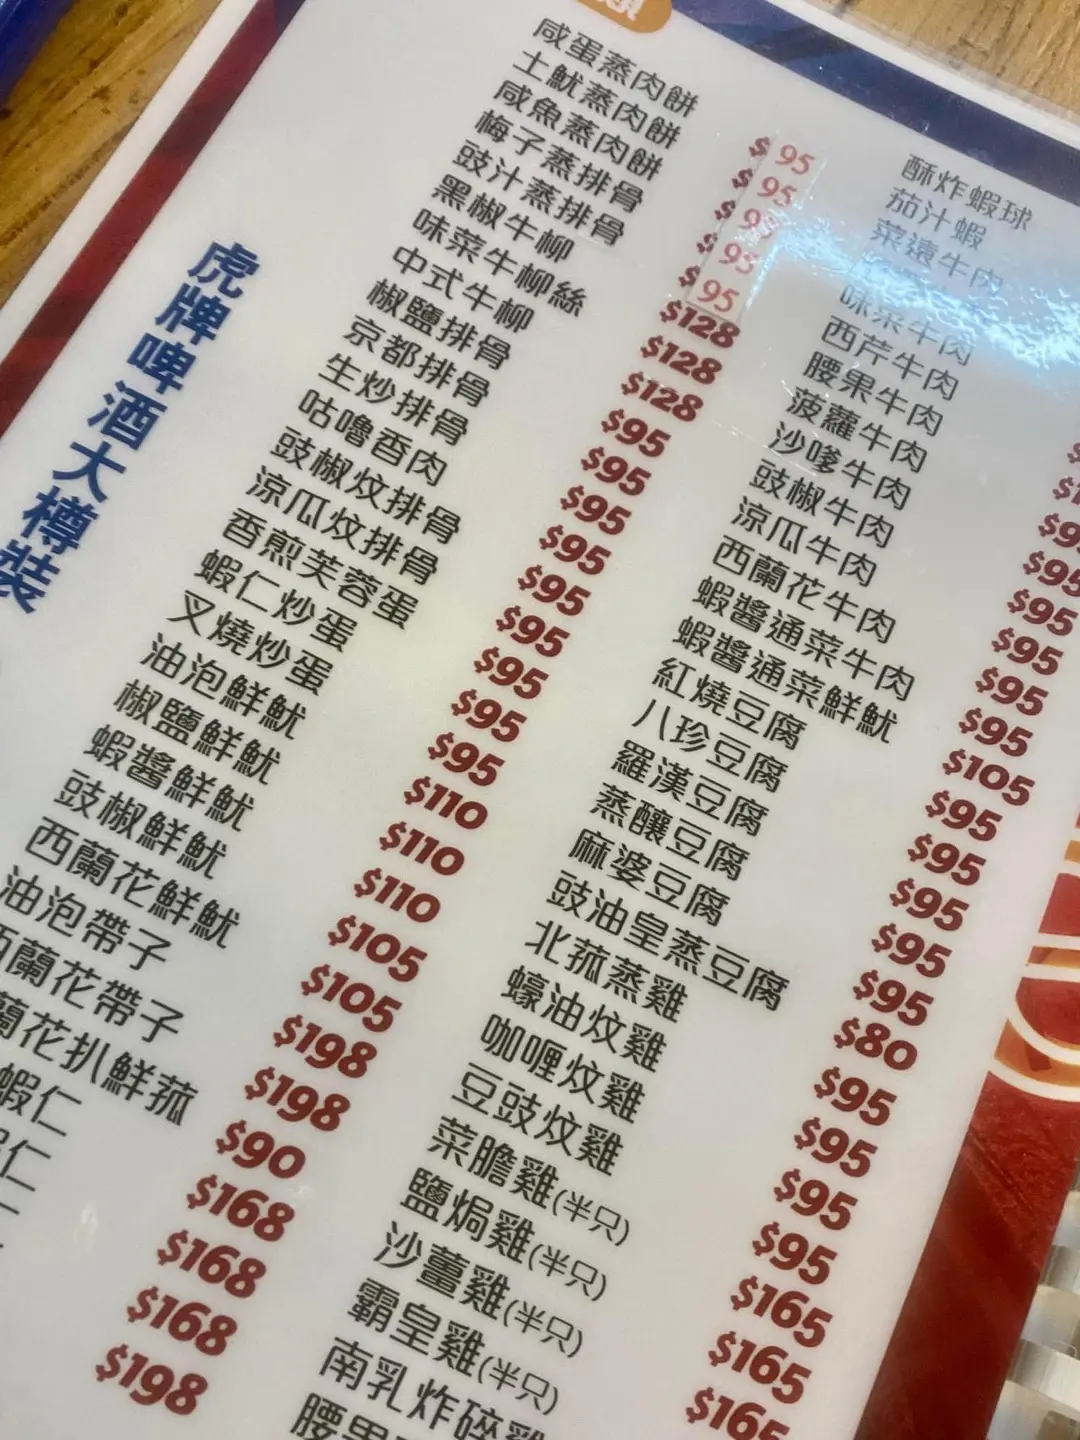 虎牌啤酒大樽裝
咸蛋蒸肉餅 $95
土魷蒸肉餅 $95
咸魚蒸肉餅 $95
梅子蒸排骨 $95
豉汁蒸排骨 $95
黑椒牛柳 $128
味菜牛柳絲 $128
中式牛柳 $128
椒鹽排骨 $95
京都排骨 $95
生炒排骨 $95
咕嚕香肉 $95
豉椒炆排骨 $95
涼瓜炆排骨 $95
香煎芙蓉蛋 $95
蝦仁炒蛋 $95
叉燒炒蛋 $95
油泡鮮魷 $110
椒鹽鮮魷 $110
蝦醬鮮魷 $110
豉椒鮮魷 $105
西蘭花鮮魷 $105
油泡帶子 $198
西蘭花帶子 $198
蘭花扒鮮菰 $90
蝦仁 $168
仁 $168
$168
$198
酥炸蝦球
茄汁蝦
菜遠牛肉
味菜牛肉
西芹牛肉
腰果牛肉
菠蘿牛肉
沙嗲牛肉 $95
豉椒牛肉 $95
涼瓜牛肉 $95
西蘭花牛肉 $95
蝦醬通菜牛肉 $95
蝦醬通菜鮮魷 $105
紅燒豆腐 $95
八珍豆腐 $95
羅漢豆腐 $95
蒸釀豆腐 $95
麻婆豆腐 $95
豉油皇蒸豆腐 $80
北菰蒸雞 $95
蠔油炆雞 $95
咖喱炆雞 $95
豆豉炆雞 $95
菜膽雞(半只) $165
鹽焗雞(半只) $165
沙薑雞(半只) $165
霸皇雞(半只)
南乳炸碎雞
腰果